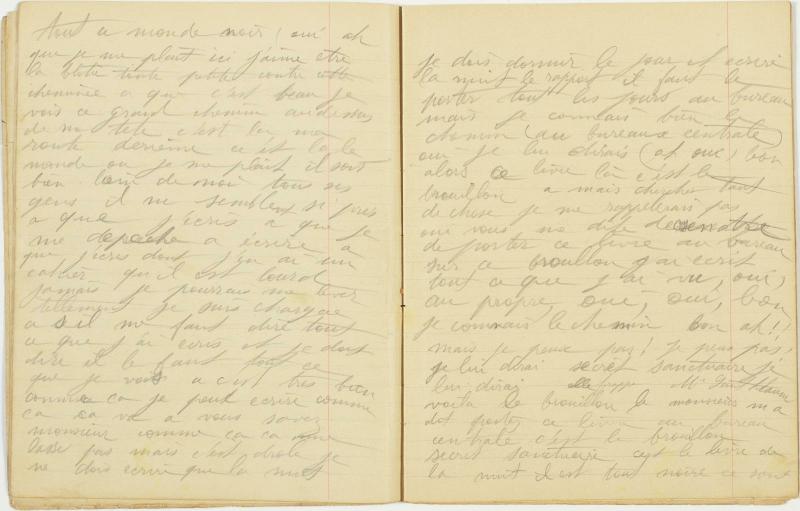 tout ce monde noir, oui ah
que je me plait ici j'aime etre
la blotie toute petite contre cette
cheminée a que c'est beau je
vois ce grand chemin au dessus
de ma tete c'est la ma
route derrière ce
monde ou je me plait il sont
bien loin de moi tous ses
gens il me semblent si près
a que j'écris a que je
me depeche a écrire a
que j'écris dont j'ai ai un
cahier qu'il est lourd
jamais je pourrais me lever
tellement je suis chargée
a s il me faut dire tout
ce que j'ai ecris et je dois
dire il le faut tout ce
que je vois a c'est très bien
comme ca je peux ecrire comme
ca ca va a vous savez
monsieur comme ca ca me
lasse pas mais c'est drole je
ne dois ecrire que la nuit
je dois dormir le jour et ecrire
la nuit le rapport il faut le
porter tout les jours au bureau
mais je connais bien le
chemin (au bureaux centrale)
oui je lui dirais (ah oui) bon
alors ce livre là c'est le
brouillon a mais chercher tant
de chose je me rappelerais pas
oui vous me dite
de porter ce livre au bureau
sur ce brouillon j'ai ecrit
tout ce que j'ai vu, oui,
au propre, oui, oui, bon
je connais le chemin bon ah!
mais je peux pas! je peux pas!
je lui dirai secret sanctuaire je
lui dirai Mr
voila le brouillon le monsieurs m'a
dit portez ce livre au bureau
centrale c'est le brouillon
secret sanctuaire c'est le livre de
la nuit il est tout noire ce sont